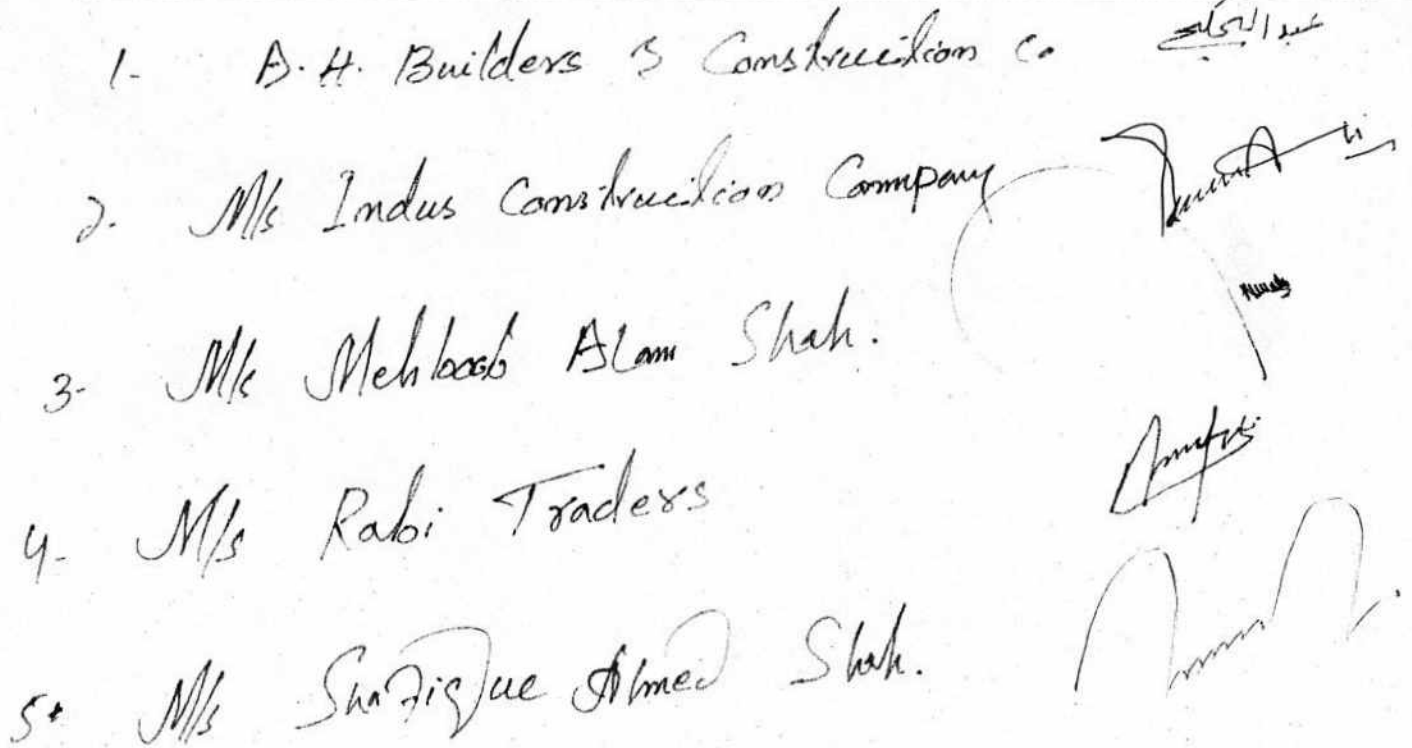 1- A.H. Builders & Construction Co
2. M/s Indus Construction Company
3- M/s Mehboob Alam Shah.
4- M/s Rabi Traders
5. M/s Shafique Ahmed Shah.